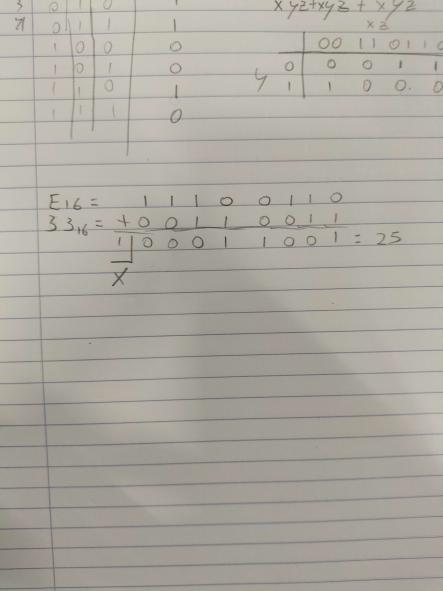 3 0 1 0
0 1 1 1
1 0 0 0
1 0 1 0
1 1 0 1
1 1 1 0
xyz+xyz + xyz
xz
00 11 01 1 0
0 0 0 1 1
y 1 1 0 0. 0
E16 = 1 1 1 0 0 1 1 0
33₁₆ = +0 0 1 1 0 0 1 1
1 0 0 0 1 1 0 0 1 = 25
X